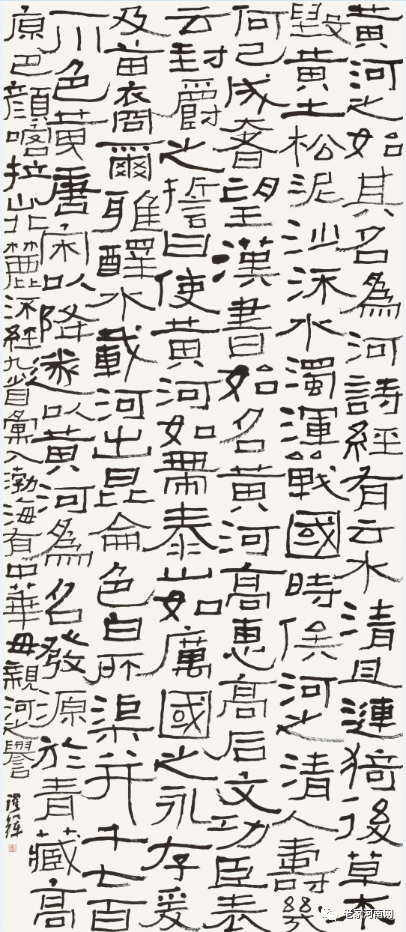 黃河之始其名為河詩經有云水清且漣猗後草木
毀黃土松泥沙流水濁渾戰國時俟河之清人壽幾
何已成奢望漢書始名黃河高惠高后文功臣表
云封爵之誓曰使黃河如帶泰山如厲國之永存爰
及苗裔爾雅釋水載河出昆侖色白所渠并千七百
一川色黃唐宋以降遂以黃河為名發源於青藏高
原巴顏喀拉山北麓流經九省彙入渤海有中華母親河之譽
老家河南网